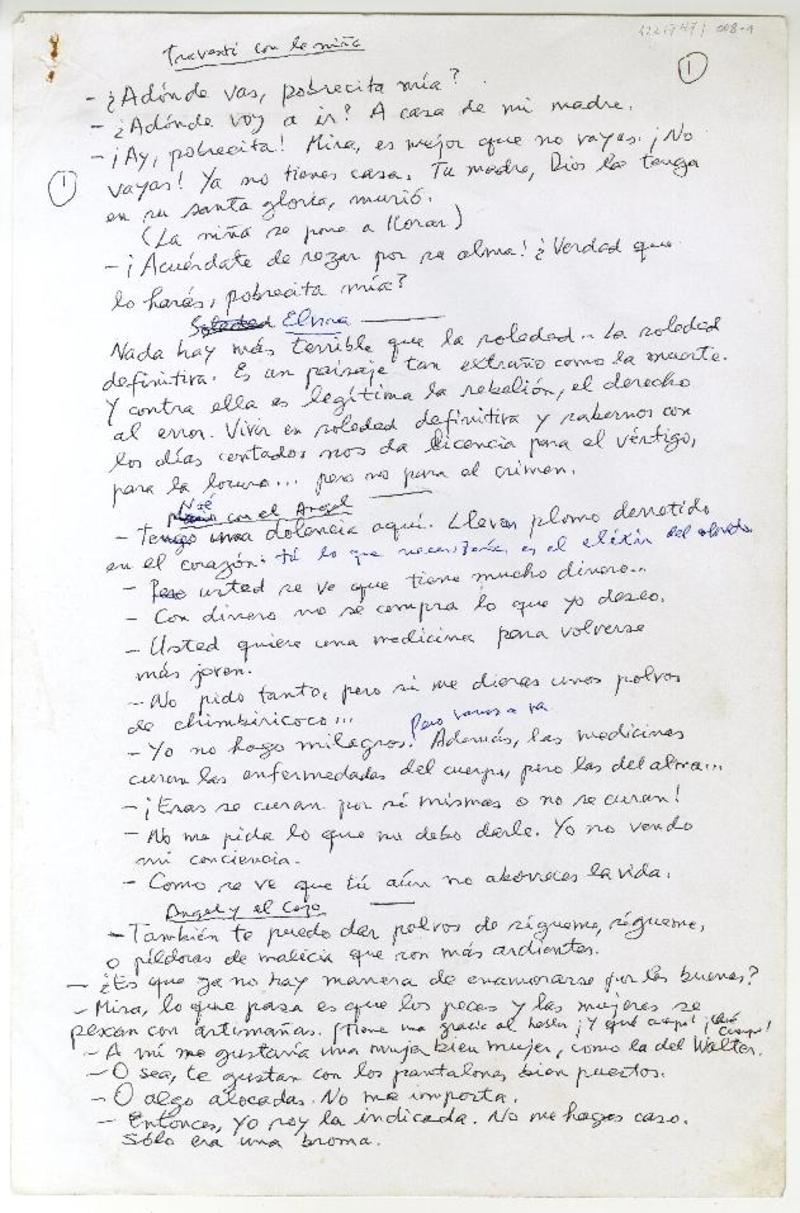 Travesti con la niña
1
- ¿Adónde vas, pobrecita mía?
- ¿Adónde voy a ir? A casa de mi madre.
- ¡Ay, pobrecita! Mira, es mejor que no vayas. ¡No
1
vayas! Ya no tienes casa. Tu madre, Dios la tenga
en su santa gloria, murió.
(La niña se pone a llorar)
- ¡Acuérdate de rezar por su alma! ¿Verdad que
lo harás, pobrecita mía?
Soledad Elvira
Nada hay más terrible que la soledad... La soledad
definitiva. Es un paisaje tan extraño como la muerte.
Y contra ella es legítima la rebelión, el derecho
al error. Vivir en soledad definitiva y sabernos con
los días contados nos da licencia para el vértigo,
para la locura... pero no para el crimen.
Noé con el Angel
- Tengo una dolencia aquí. Llevas plomo derretido
en el corazón. tú lo que necesitarías es el elíxir del olvido
- Pero usted se ve que tiene mucho dinero...
- Con dinero no se compra lo que yo deseo.
- Usted quiere una medicina para volverse
más joven.
- No pido tanto, pero si me dieras unos polvos
de chimbiricoco...
Pero vamos a ver
- Yo no hago milagros. Además, las medicinas
curan las enfermedades del cuerpo, pero las del alma...
- ¡Esas se curan por sí mismas o no se curan!
- No me pida lo que no debo darle. Yo no vendo
mi conciencia.
- Como se ve que tú aún no aborreces la vida.
Angel y el Cojo
- También te puedo dar polvos de sígueme, sígueme,
o píldoras de malicia que son más ardientes.
- ¿Es que ya no hay manera de enamorarse por las buenas?
- Mira, lo que pasa es que los peces y las mujeres se
pescan con artimañas. ¡Tiene una gracia al hablar ¡Y qué cuerpo! ¡Qué cuerpo!
- A mí me gustaría una mujer bien mujer, como la del Walter.
- O sea, te gustan con los pantalones bien puestos.
- O algo alocadas. No me importa.
- Entonces, yo soy la indicada. No me hagas caso.
Sólo era una broma.